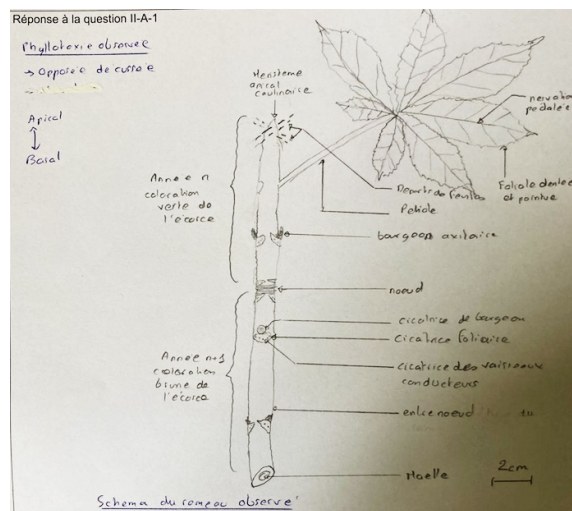 Réponse à la question II-A-1
Phyllotaxie observée
→ Opposée décussée
Apical
Basal
Meristeme
apical
caulinaire
nervation
pedalée
Foliole dentée
et pointue
Année n
coloration
verte de
l'écorce
Départ de feuilles
Petiole
bourgeon axilaire
noeud
cicatrice de bourgeon
cicatrice foliaire
cicatrice des vaisseaux
conducteurs
Année n-1
coloration
brune de
l'écorce
entrenoeud
Moelle
2cm
Schema du rameau observé